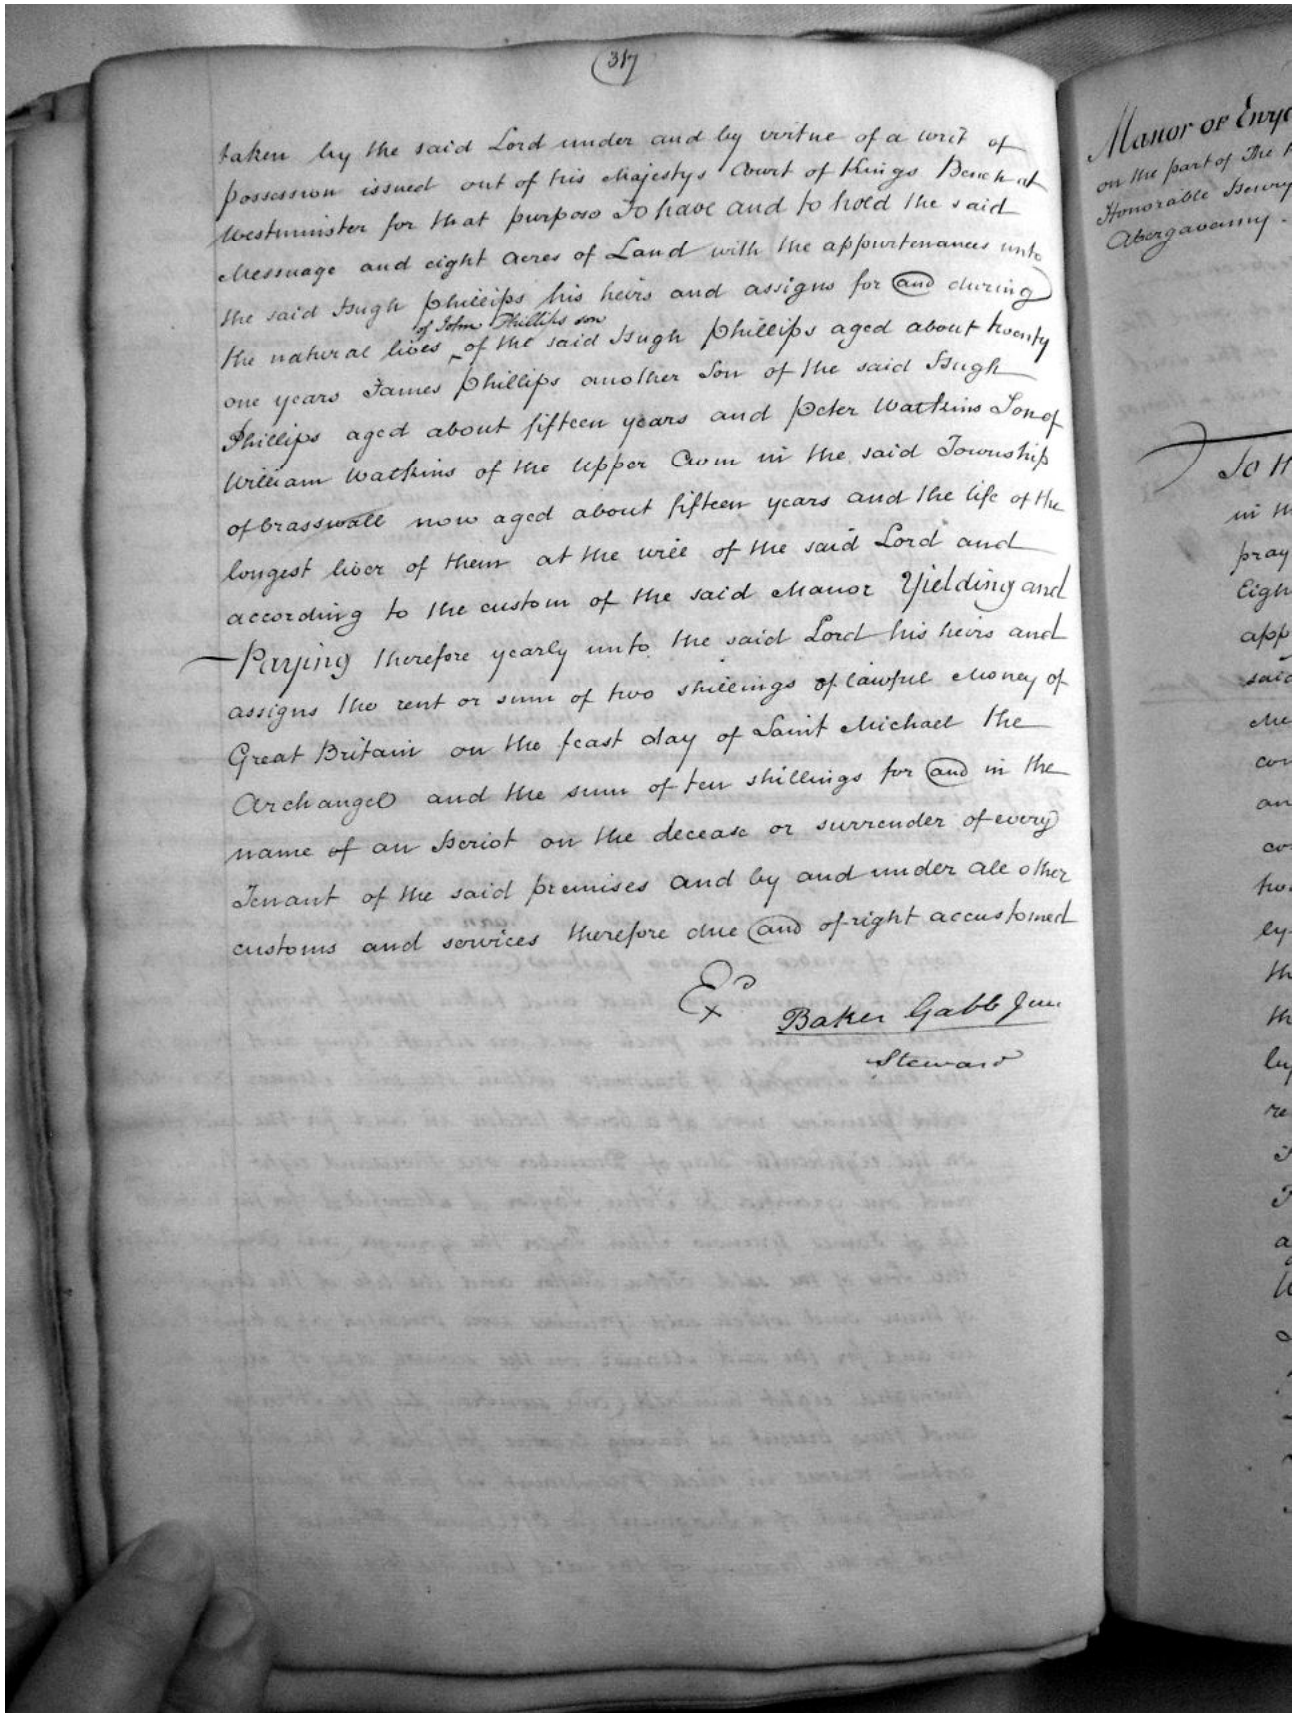 317
taken by the said Lord under and by virtue of a writ of
possession issued out of his Majestys Court of Kings Bench at
Westminster for that purpose To have and to hold the said
Messuage and eight acres of Land with the appurtenances unto
the said Hugh Phillips his heirs and assigns for and during
of John Phillips son
the natural lives of the said Hugh Phillips aged about twenty
one years James Phillips another Son of the said Hugh
Phillips aged about fifteen years and Peter Watkins Son of
William Watkins of the Upper Cwm in the said Township
of Crasswall now aged about fifteen years and the life of the
longest liver of them at the will of the said Lord and
according to the custom of the said Manor Yielding and
Paying therefore yearly unto the said Lord his heirs and
assigns the rent or sum of two shillings of lawful Money of
Great Britain on the feast day of Saint Michael the
Archangel and the sum of ten shillings for and in the
name of an Heriot on the decease or surrender of every
Tenant of the said premises and by and under all other
customs and services therefore due and of right accustomed
Exd
Baker Gabb Junr
Steward
Manor of Ewya
on the part of The
Honorable Henry
Abergavenny.
To
in th
pray
Eigh
app
said